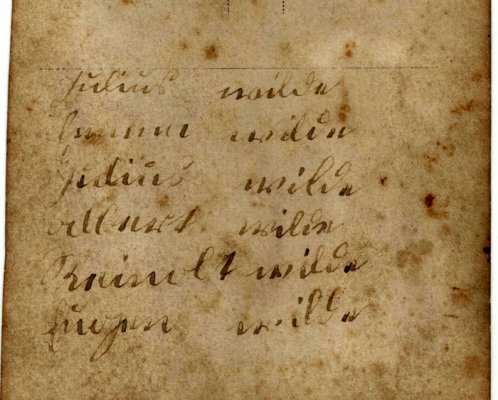 Julius wilde
Emma wilde
Julius wilde
albert wilde
Reinolt wilde
Eugen wilde